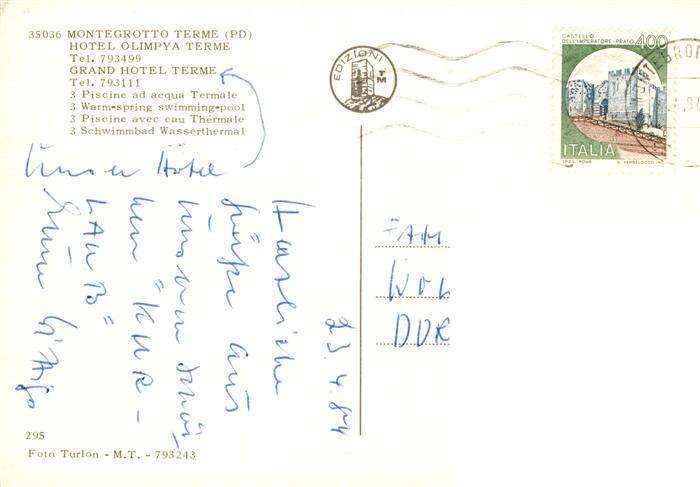 35036 MONTEGROTTO TERME (PD)
HOTEL OLIMPYA TERME
Tel. 793499
GRAND HOTEL TERME
Tel. 793111
3 Piscine ad acqua Termale
3 Warm-spring swimming-pool
3 Piscine avec eau Thérmale
3 Schwimmbad Wasserthermal
Unser Hotel
23.4.84
Herzliche
Grüße aus
unserem schö-
nen "KUR-
LAUB"
EDIZIONI
TM
CASTELLO
DELL'IMPERATORE-PRATO
400
ITALIA
I.P.Z.S. ROMA
FAM
WOL
DDR
295
Foto Turlon - M.T. - 793243